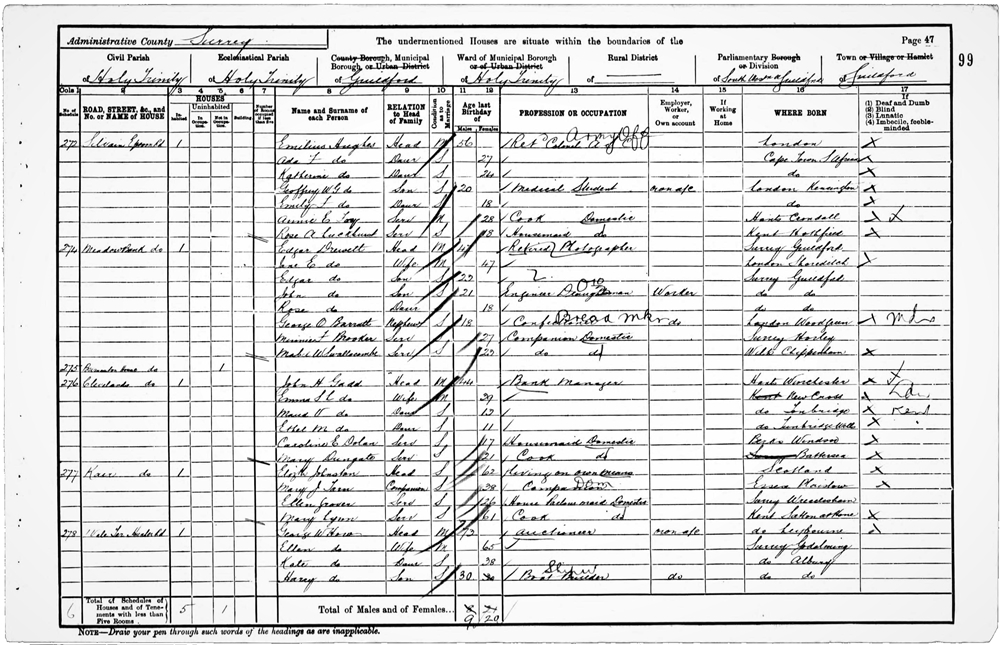 Administrative County Surrey
The undermentioned Houses are situate within the boundaries of the
Page 47
99
Civil Parish
of Holy Trinity
Ecclesiastical Parish
of Holy Trinity
County Borough, Municipal Borough, or Urban District
of Guildford
Ward of Municipal Borough or of Urban District
of Holy Trinity
Rural District
of
Parliamentary Borough or Division
of South West or Guildford
Town or Village or Hamlet
of Guildford
Cols 1 2 3 4 5 6 7 8 9 10 11 12 13 14 15 16 17
No. of Schedule
ROAD, STREET, &c., and No. or NAME of HOUSE
HOUSES
In-habited
Uninhabited
In Occupa-tion.
Not in Occupa-tion.
Building
Number of Rooms occupied if less than five
Name and Surname of each Person
RELATION to Head of Family
Condition as to Marriage
Age last Birthday of
Males Females
PROFESSION OR OCCUPATION
Employer, Worker, or Own account
If Working at Home
WHERE BORN
If
(1) Deaf and Dumb
(2) Blind
(3) Lunatic
(4) Imbecile, feeble-minded
Epsom Rd 1 Emilius Hughes Head M 56 Army Off London
Ada F do Daur S 27 Cape Town S Africa
Katherine do Daur S do
Geoffrey W G do Son S 20 Medical Student own a/c London Kensington
Emily L do Daur S 18 do
Annie E Serv 28 Cook Domestic Hants Crondall
Rose A Luckhurst Serv S 18 Housemaid do Kent Hothfield
274 Meadow Bank do 1 Edgar Drewett Head M Retired Photographer Surrey Guildford
Jane E do Wife M 47 London Shoreditch
Edgar do Son S 22 Surrey Guildford
John do Son S 21 Engineer Draughtsman Worker do do
Rose do Daur 18 do do
George O Barratt Nephew S 18 Confectioner Bread mkr do London Woodgreen
F Brooker Serv 27 Companion Domestic Surrey Horley
Mabel W Swallacombe Serv 23 do do Wilts Chippenham
275 House do 1
276 Clevelands do 1 John H Gadd Head M 44 Bank Manager Hants Winchester
Emma S L do Wife M 39 Kent New Cross
Maud V do Daur S 13 do Tonbridge
Ethel M do Daur S 11 do Tunbridge Wells
Caroline E Dolan Serv S 17 Housemaid Domestic Berks Windsor
Mary Dungate Serv S 21 Cook do Battersea
277 do 1 Elizth Johnston Head S 62 Living on own means Scotland
Mary J Tarn Companion S 38 Companion Dom Essex Plaistow
Ellen Grover Serv S 26 House Parlourmaid Domestic Surrey Wrecclesham
Mary Lynn Serv S 61 Cook do Kent Sutton at Hone
278 1 George W Head M 73 Auctioneer own a/c do Leybourne
Ellen do Wife M 65 Surrey Godalming
Kate do Daur S 38 do Albury
Harry do Son S 30 Boat Builder do do do
6
Total of Schedules of Houses and of Tene-ments with less than Five Rooms
5 1
Total of Males and of Females...
9 20
NOTE—Draw your pen through such words of the headings as are inapplicable.